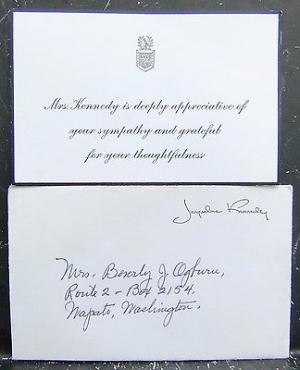 Mrs. Kennedy is deeply appreciative of
your sympathy and grateful
for your thoughtfulness
Jacqueline Kennedy
Mrs. Beverly J. Ogburn,
Route 2 - Box 2154.
Wapato, Washington.